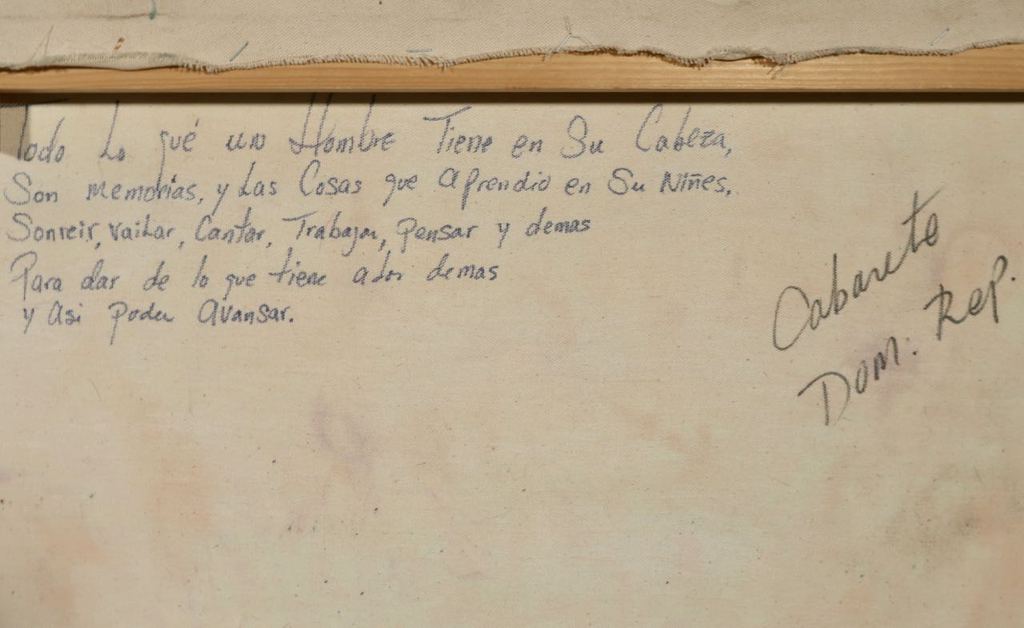 Todo Lo qué un Hombre Tiene en Su Cabeza,
Son memorias, y Las Cosas que aprendio en Su Niñes,
Sonreir, vailar, Cantar, Trabajar, pensar y demas
Para dar de lo que tiene a los demas
y Asi poder Avansar.
Cabarete
Dom. Rep.